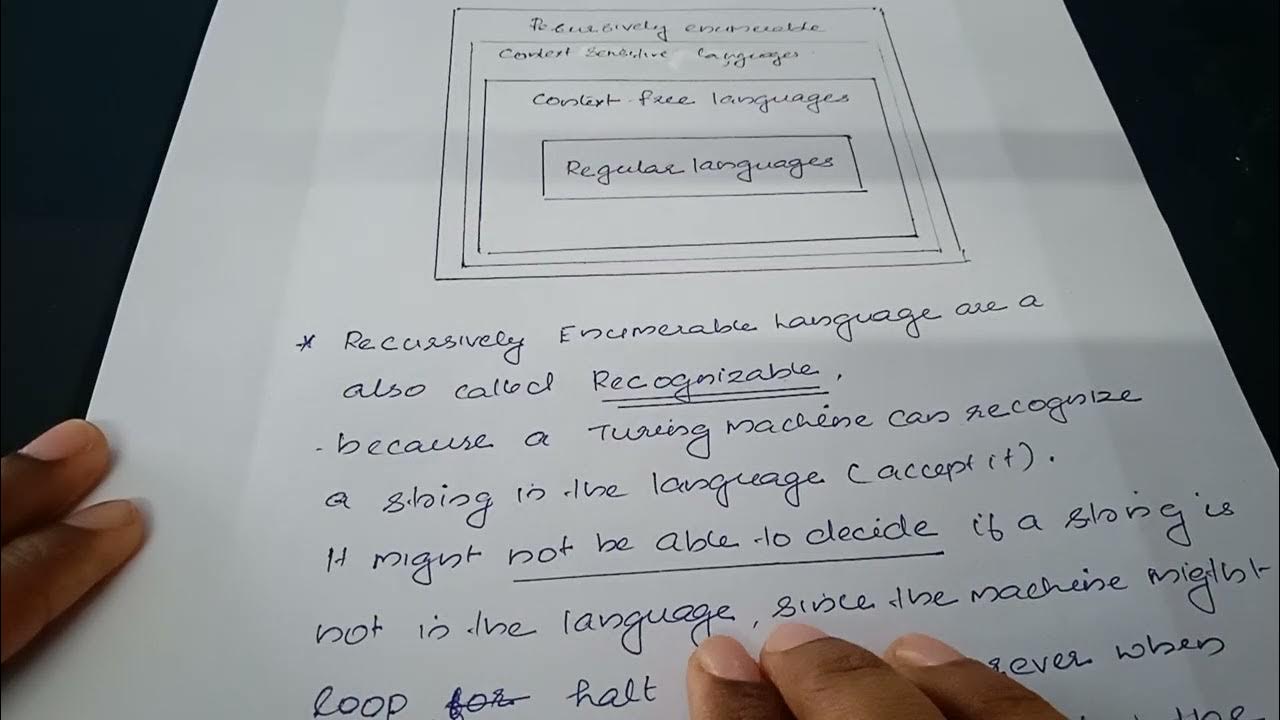 Recursively enumerable
Context Sensitive languages
Context-free languages
Regular languages
* Recursively Enumerable Language are a
also called Recognizable.
- because a Turing machine can recognize
a string in the language (accept it).
It might not be able to decide if a string is
not in the language, since the machine might
loop for halt when
the